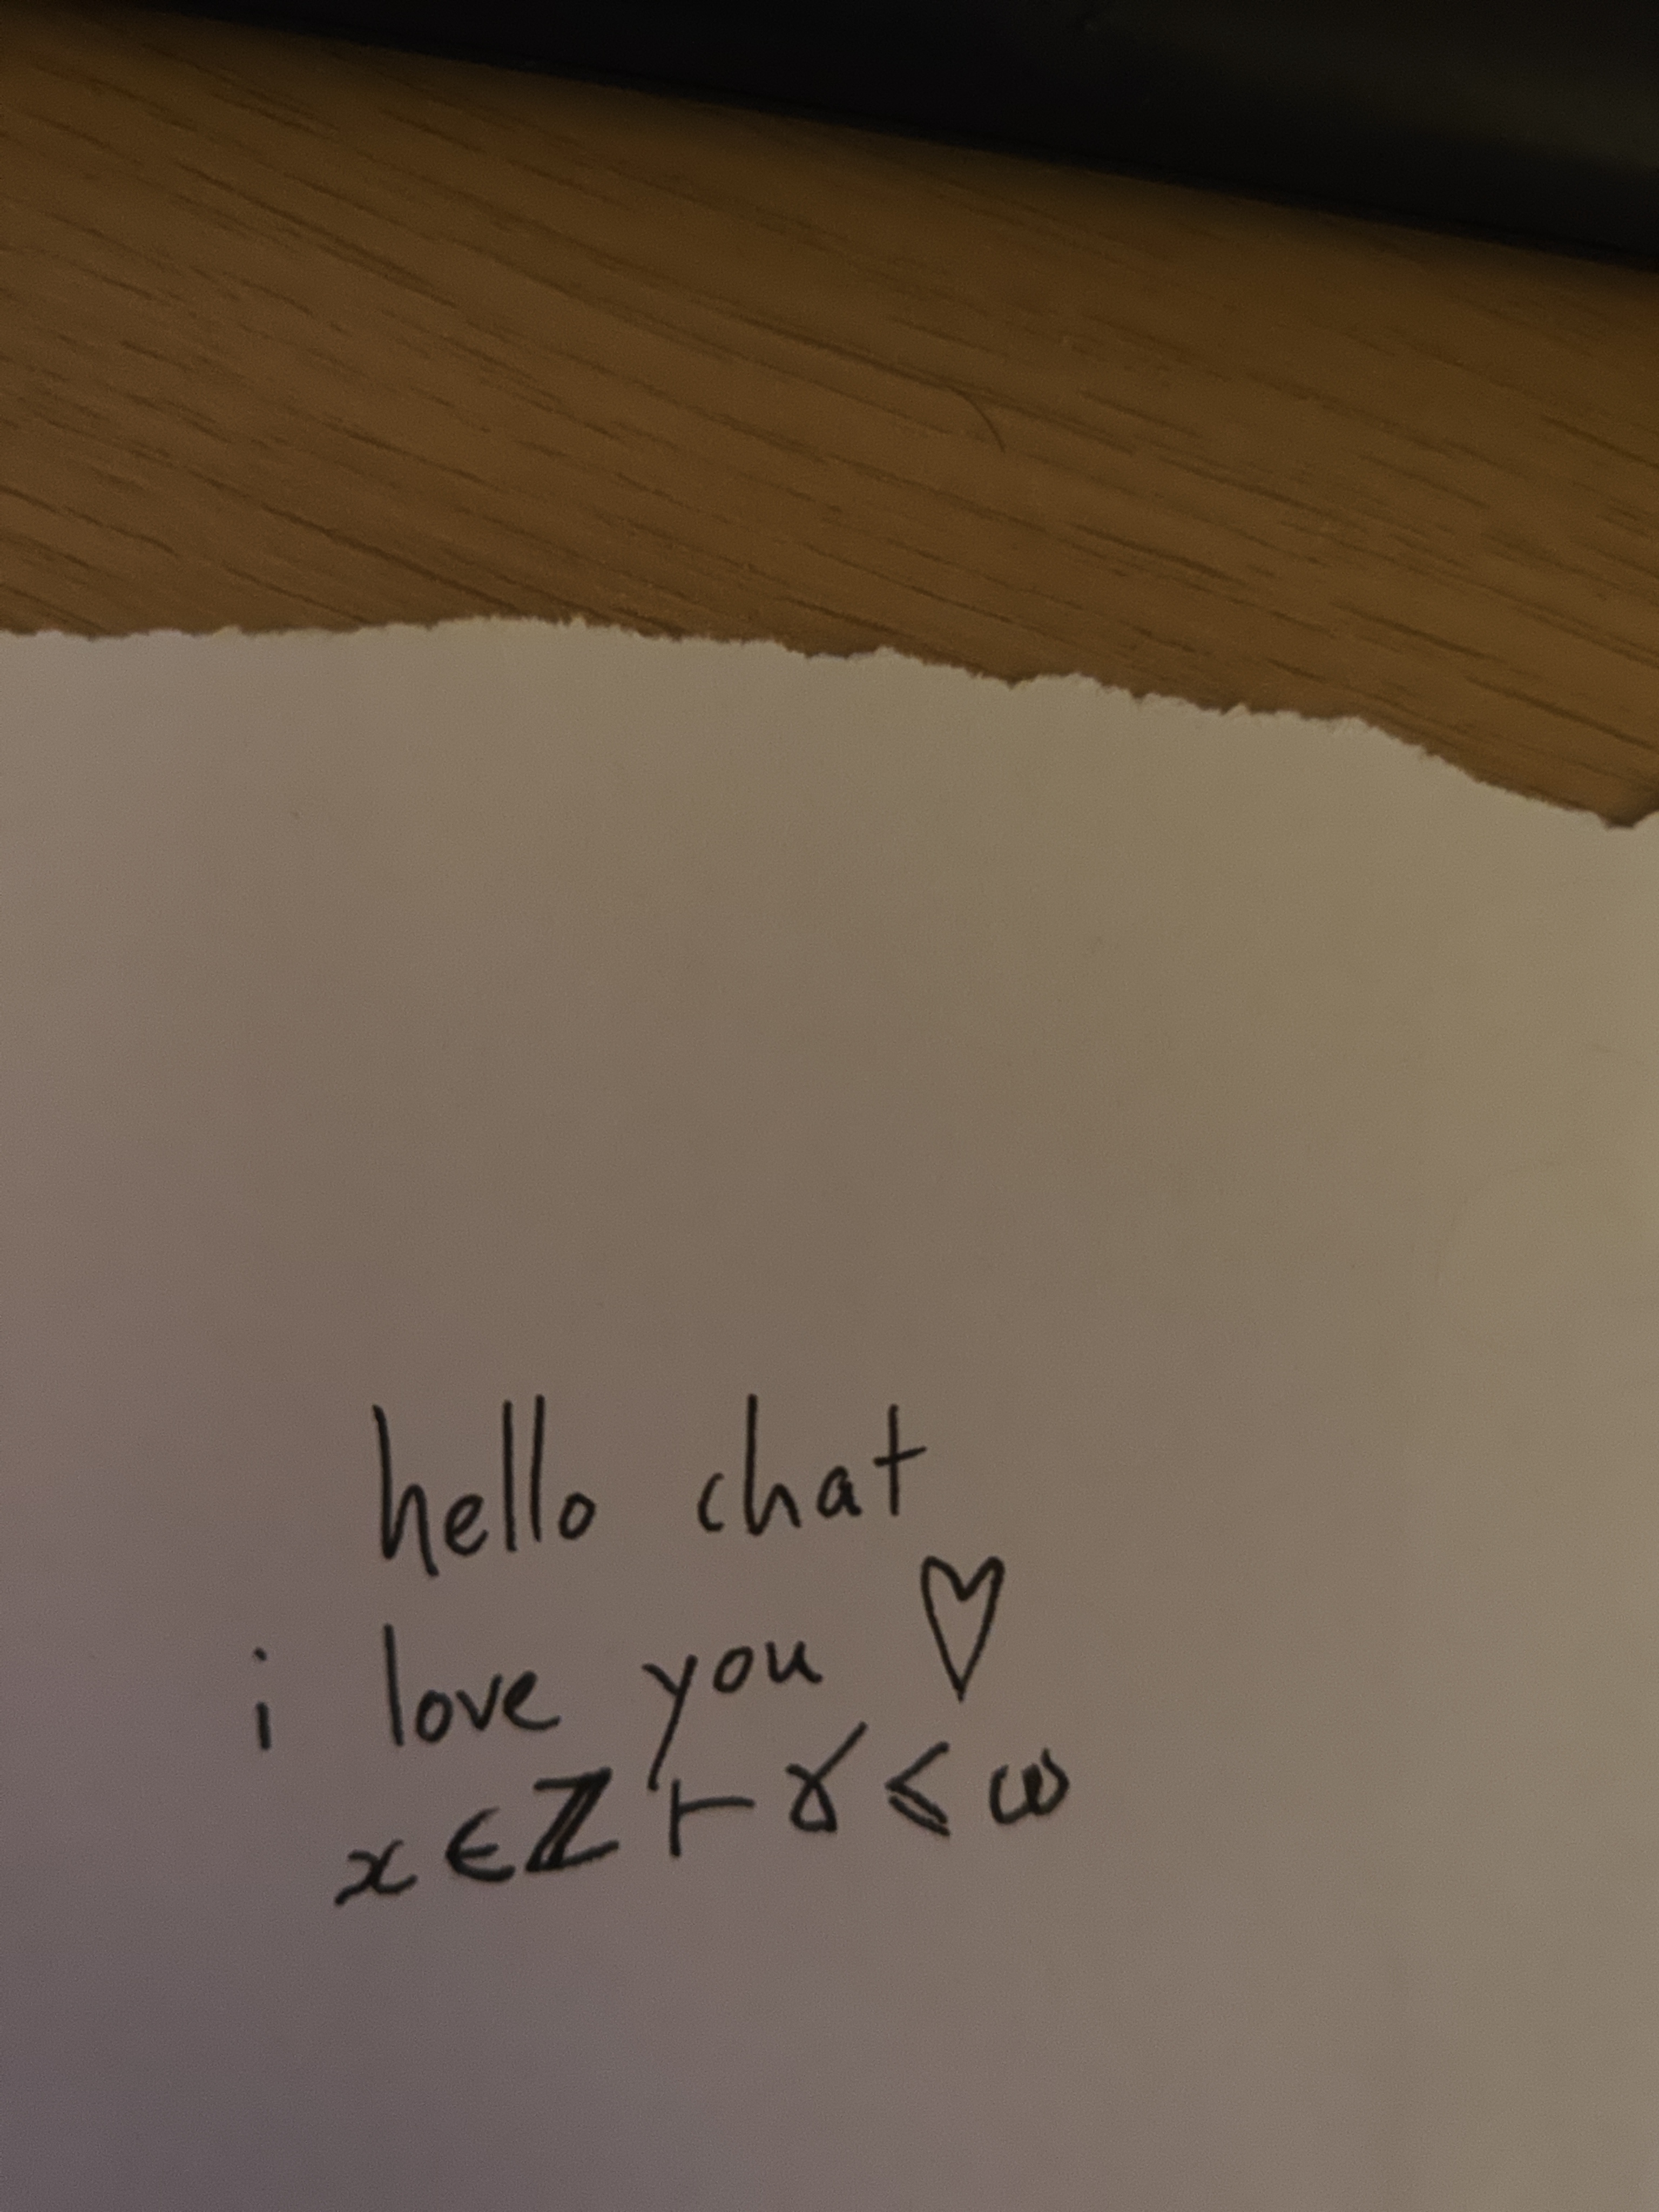 hello chat
i love you ♡
x ∈ ℤ ⊢ γ ⩽ ω